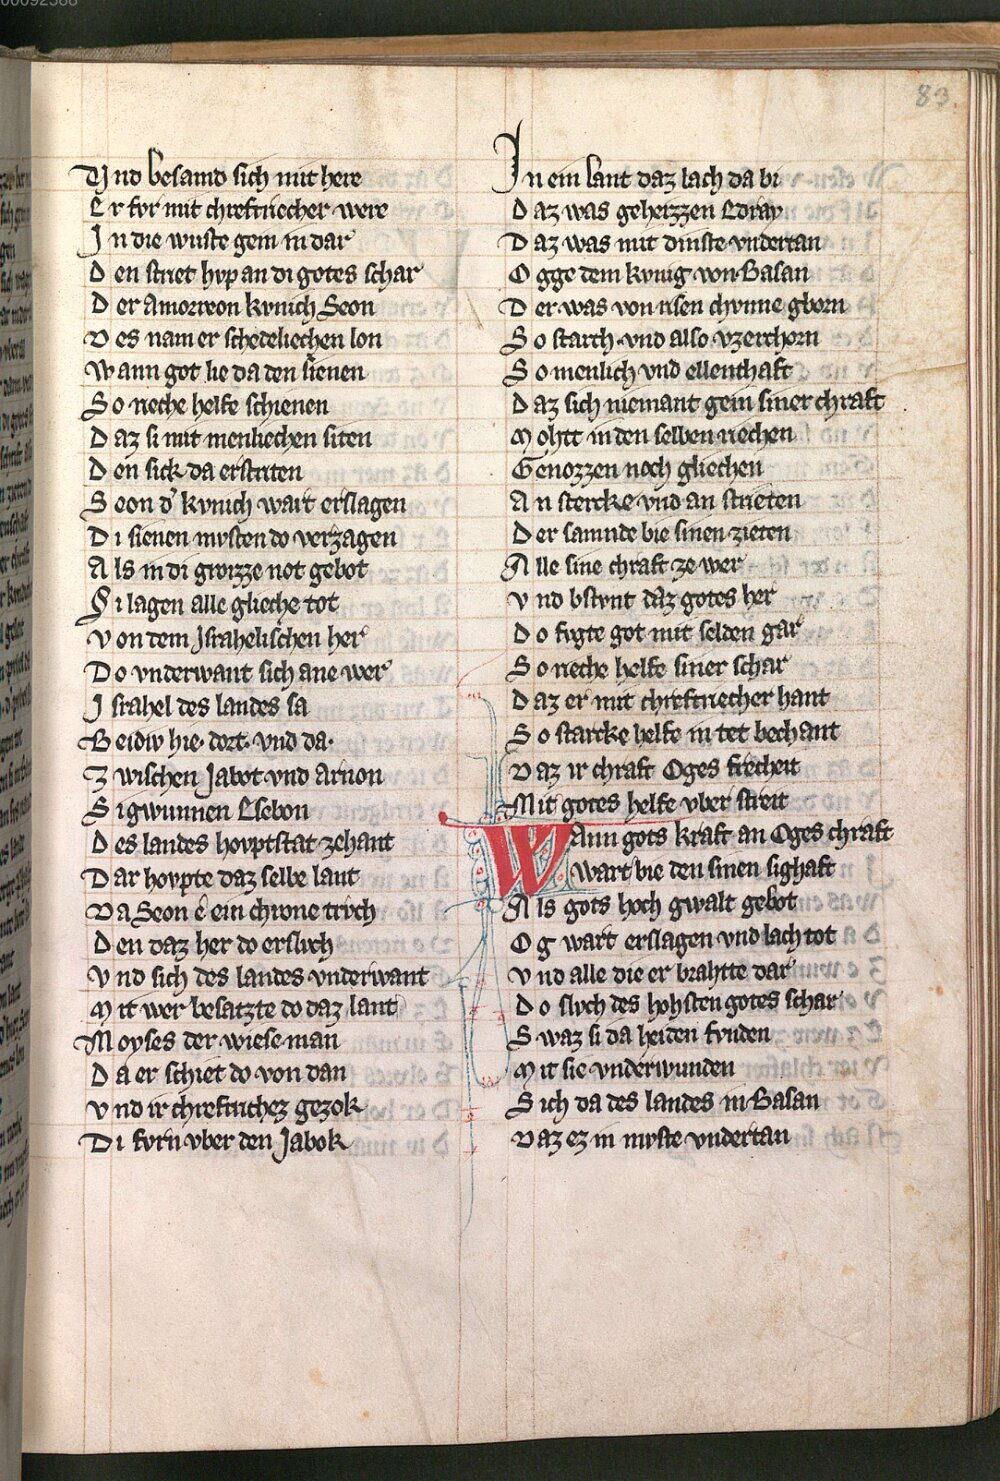 00092588
83
Vnd besamd sich mit here
Er for mit chreftriecher were
In die wuste gein in dar
Den striet hvp an di gotes schar
Der amorreon kvnich Seon
Des nam er schedeliechen lon
Wann got lie da den sienen
So riche helfe schienen
Daz si mit menliechen siten
Den sick da erstriten
Seon d' kvnich wart erslagen
Di sienen mvsten do verzagen
Als in di grozze not gebot
Si lagen alle glieche tot
Von dem Israhelischen her
Do vnderwant sich ane wer
Israhel des landes sa
Beidiv hie· dort· vnd da·
Zwischen Jabot vnd arnon
Si gwunnen Esebon
Des landes hovptstat zehant
Dar hovpte daz selbe lant
Da Seon e ein chrone trvch
Den daz her do erslvch
Vnd sich des landes vnderwant
Mit wer besatzte do daz lant
Moyses der wiese man
Da er schiet do von dan
Vnd ir chreftichez gezok
Di fvrn vber den Jabok
In ein lant daz lach da bi
Daz was geheizzen Edray
Daz was mit dinste vndertan
Ogge dem kvnig von Basan
Der was von risen chvnne gborn
So starch vnd also vzerchorn
So menlich vnd ellenthaft
Daz sich niemant gein siner chraft
Mohtt in den selben riechen
Genozzen noch gliechen
An stercke vnd an strieten
Der samnde bie sinen zieten
Alle sine chraft ze wer
Vnd bstvnt daz gotes her
Do fvgte got mit selden gar
So riche helfe siner schar
Daz er mit chreftriecher hant
So starcke helfe in tet bechant
Daz ir chraft Oges friecheit
Mit gotes helfe vber streit
Wann gots kraft an Oges chraft
Wart bie den sinen sighaft
Als gots hoch gwalt gebot
Og wart erslagen vnd lach tot
Vnd alle die er brahtte dar
Do slvch des hohsten gotes schar
Swaz si da heiden fvnden
Mit sie vnderwunden
Sich da des landes in Basan
Daz ez in mvste vndertan